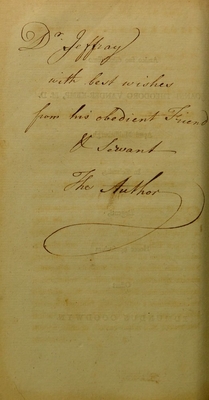 Dr. Jeffray
with best wishes
from his obedient Friend
& Servant
The Author